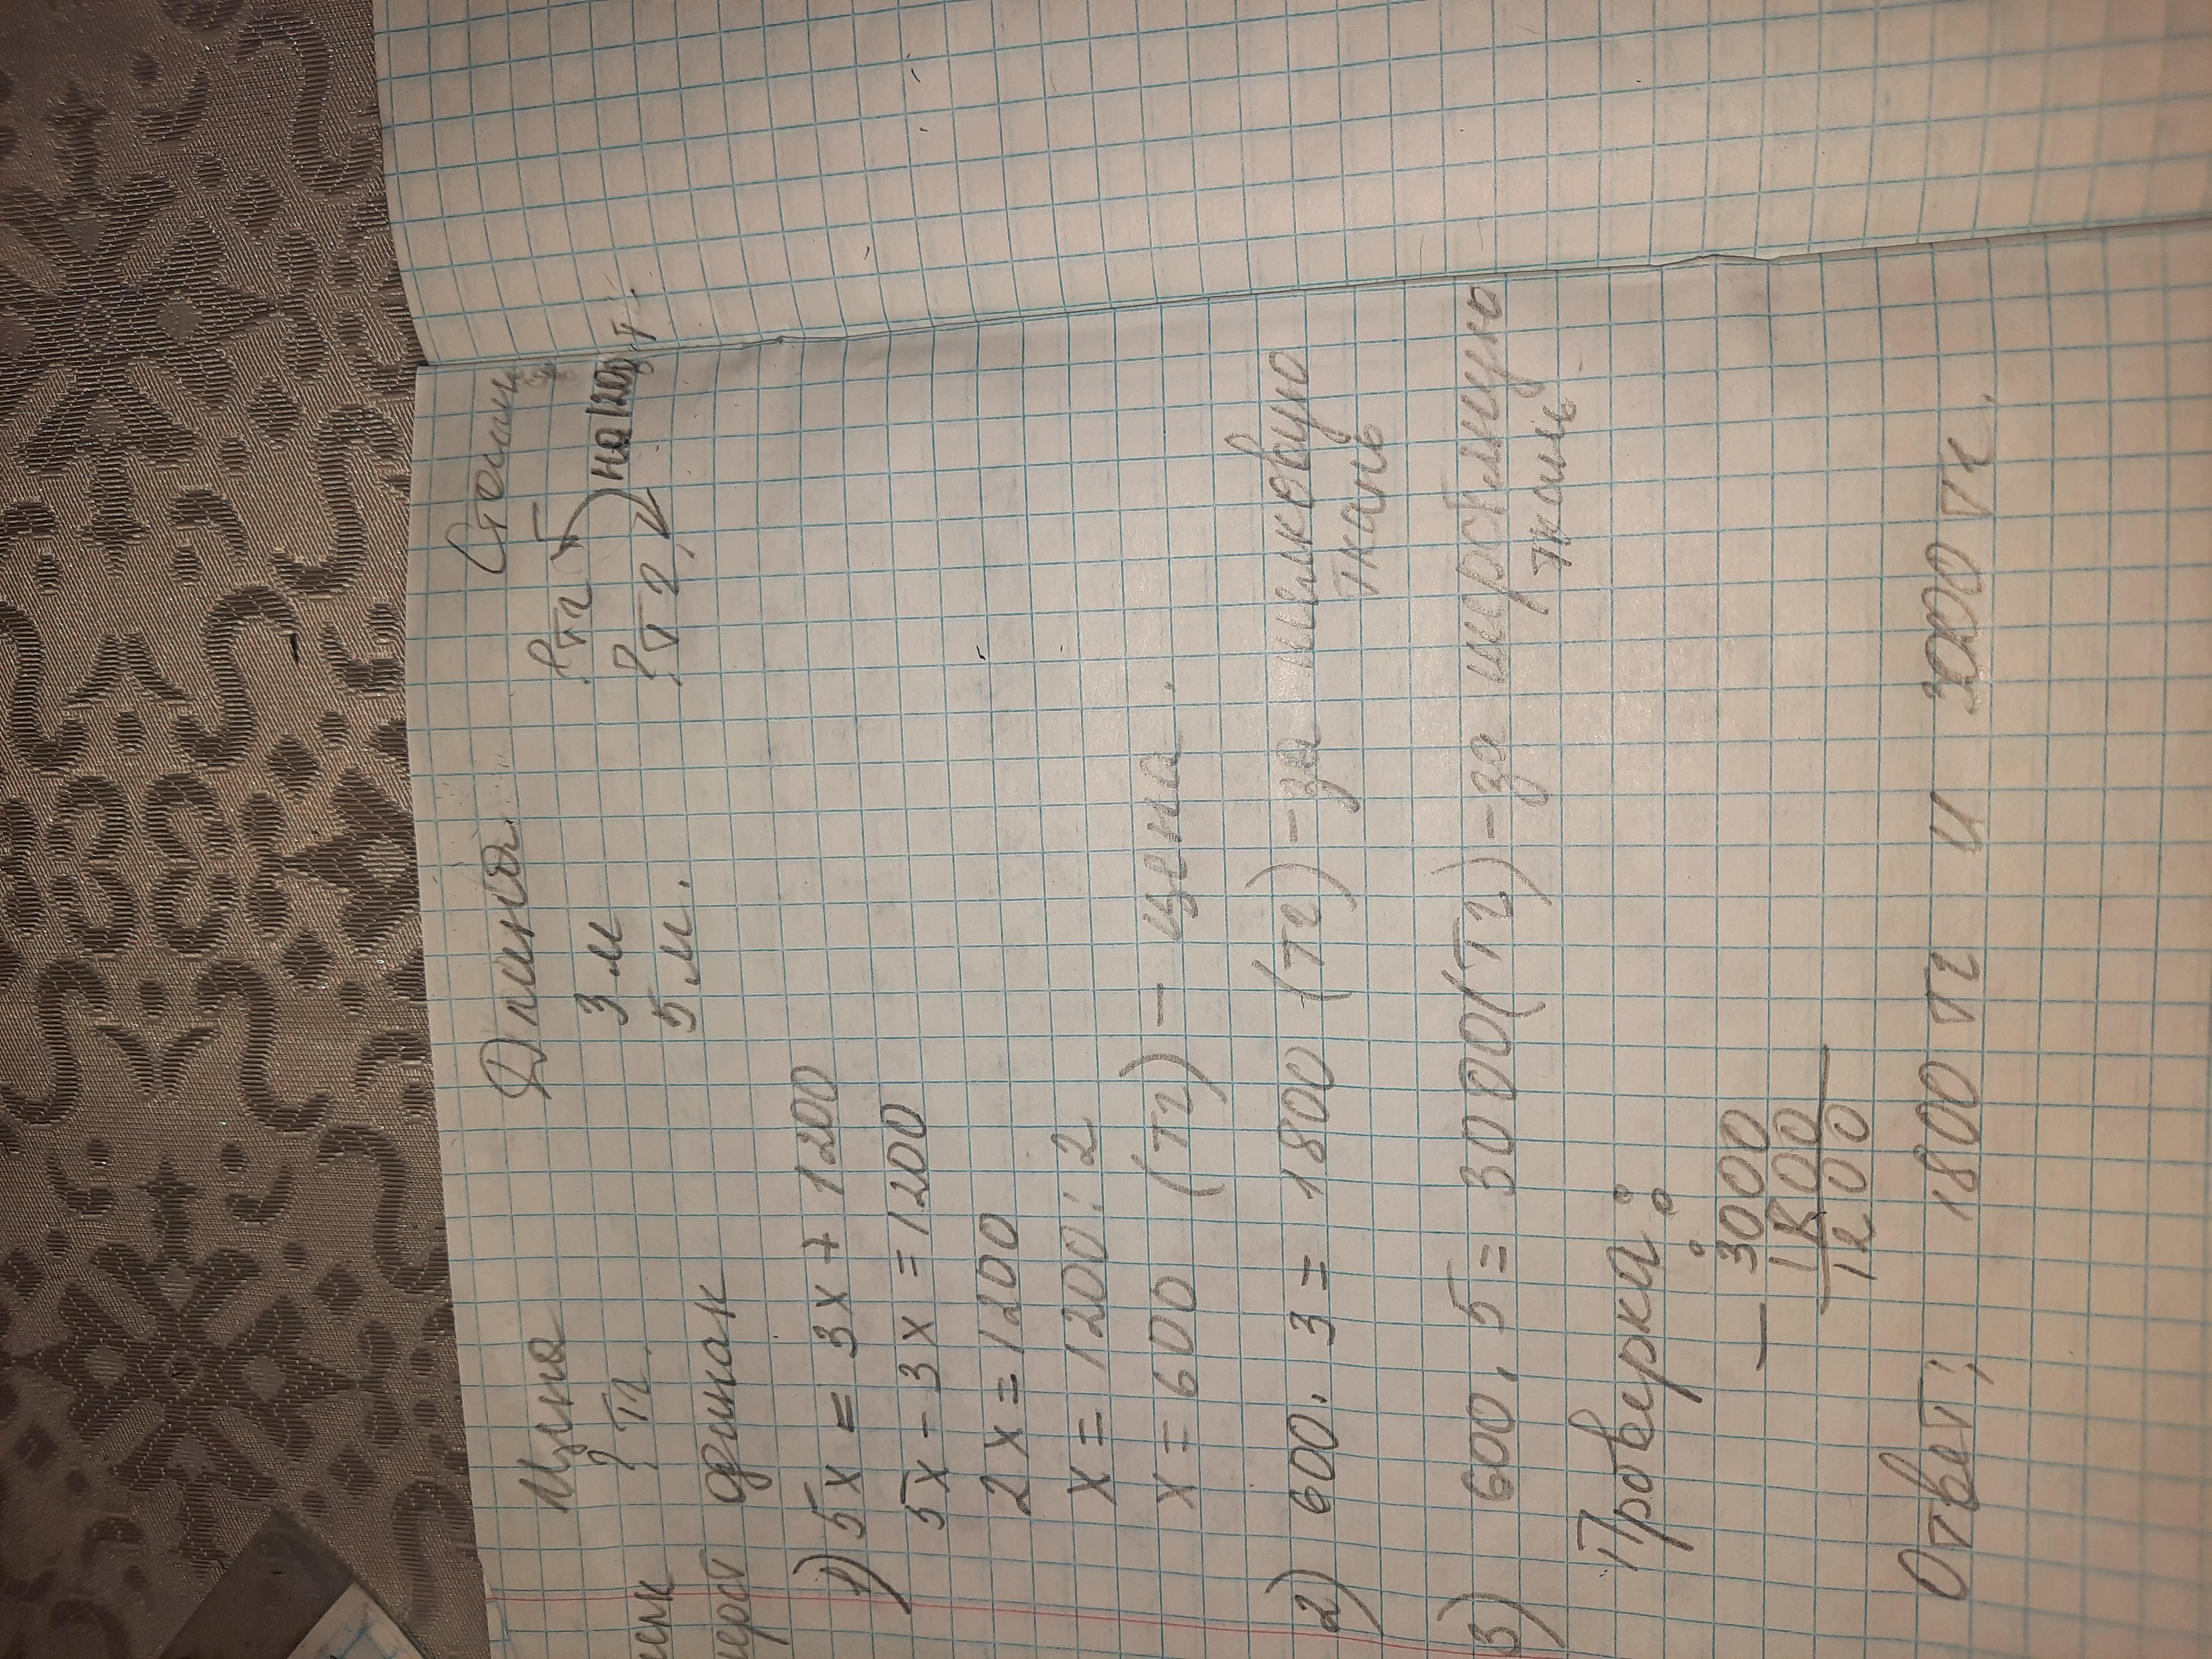 Цена Длина Стоим
елк ? тг. 3 м ? тг
ерст одинак 5 м. ? тг, на 1200 т.
1) 5х = 3х + 1200
5х - 3х = 1200
2х = 1200
х = 1200 : 2
х = 600 (тг) - цена.
2) 600 . 3 = 1800 (тг) - за шелковую
ткань
3) 600 . 5 = 3000 (тг) - за шерстяную
ткань
Проверка:
- 3000
1800
1200
Ответ: 1800 тг и 3000 тг.